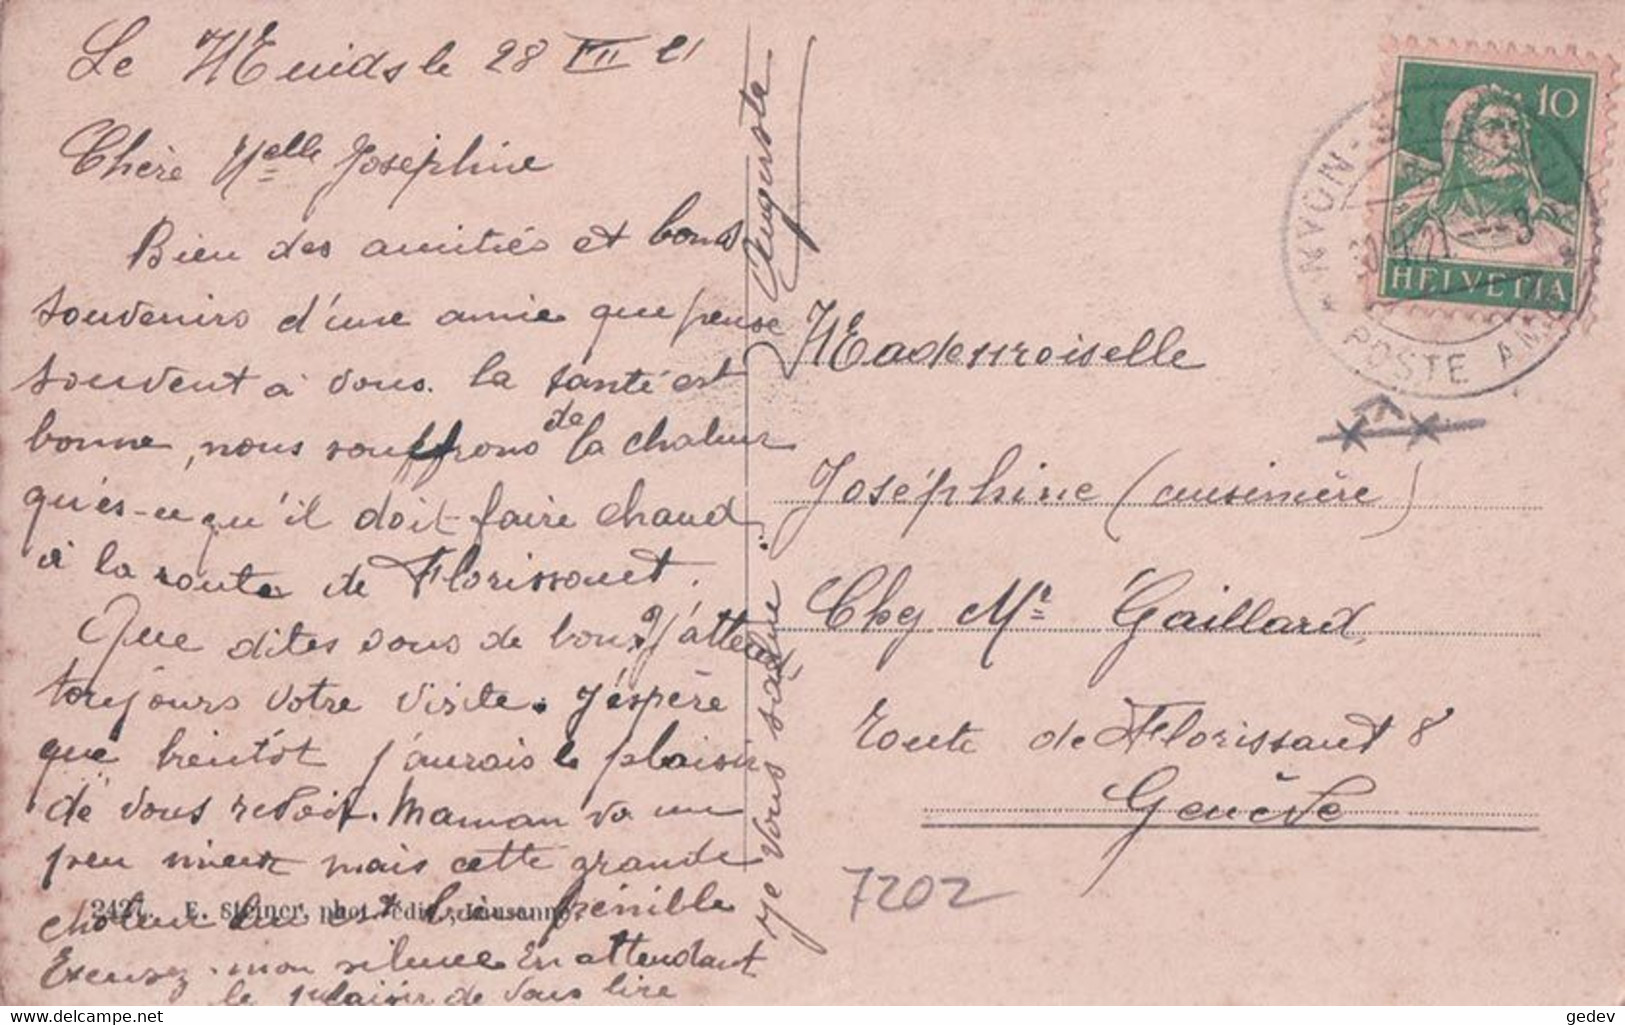 Le Muids le 28 VII 21
Chère Melle Joséphine
Bien des amitiés et bons
souvenirs d'une amie que pense
souvent à vous. la santé est
bonne, nous souffrons de la chaleur
qu'es-ce qu'il doit faire chaud
à la route de Florissant.
Que dites vous de bon, J'attend,
toujours votre visite. J'éspère
que bientôt j'aurais le plaisir
de vous revoir. Maman va un
peu mieux mais cette grande
chaleur lui est très pénible
Excusez mon silence En attendant
le plaisir de vous lire
je vous salue.
Auguste
2427. E. Steiner, phot. édit., Lausanne
10
HELVETIA
NYON
21. -- 3
POSTE AM
Mademoiselle
Joséphine (cuisinière)
Chez Mr Gaillard
Route de Florissant 8
Genève
7202
www.delcampe.net
gedev